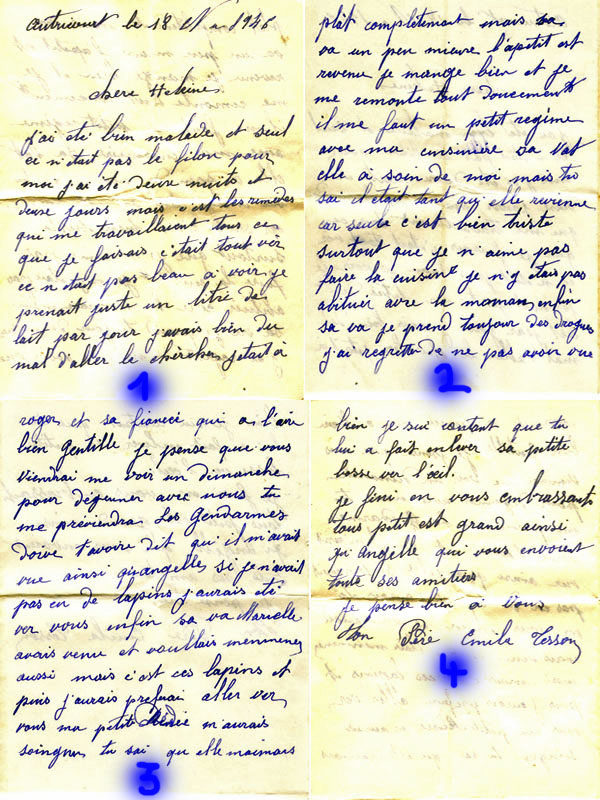 Autricourt le 18 N 1945
chere Heleine
j'ai été bien malade et seul
ce n'était pas le filon pour
moi j'ai été deuve nuits et
deuve jours mais c'est les remedes
qui me travaillaient tous ce
que je faisais c'était tout vèr
ce n'était pas beau à voir je
prenait juste un litre de
lait par jour j'avais bien du
mal d'aller le chercher j'etait à
1
plat complètement mais sa
va un peu mieuve l'apétit est
revenu je mange bien et je
me remonte tout doucement
il me faut un petit regime
avec ma cuisinière sa Vat
elle à soin de moi mais tu
sai il était tant qu'elle revienne
car seule c'est bien triste
surtout que je n'aime pas
faire la cuisine je n'y étais pas
abituer avec la maman enfin
sa va je prend toujour des drogues
j'ai regretter de ne pas avoir vue
2
roger et sa fiancée qui a l'aire
bien gentille je pense que vous
viendrai me voir un dimanche
pour déjeuner avec nous tu
me previendra Les Gendarmes
doive t'avoire dit qu'il m'avait
vue ainsi qu'angelle, si je n'avait
pas eu de lapins j'aurais été
ver vous enfin sa va Marcelle
avais venue et voullais m'emmenez
aussi mais c'est ces lapins et
puis j'aurais préfuai aller ver
vous ma petite m'aurais
soingner tu sai qu elle maimais
3
bien je sui contant que tu
lui a fait enlever sa petite
bosse ver l'œil.
je fini en vous embrassant
tous petit est grand ainsi
qu'Angelle qui vous envoient
toute ses amitiers
je pense bien à vous
Ton Père Emile Tesson
4